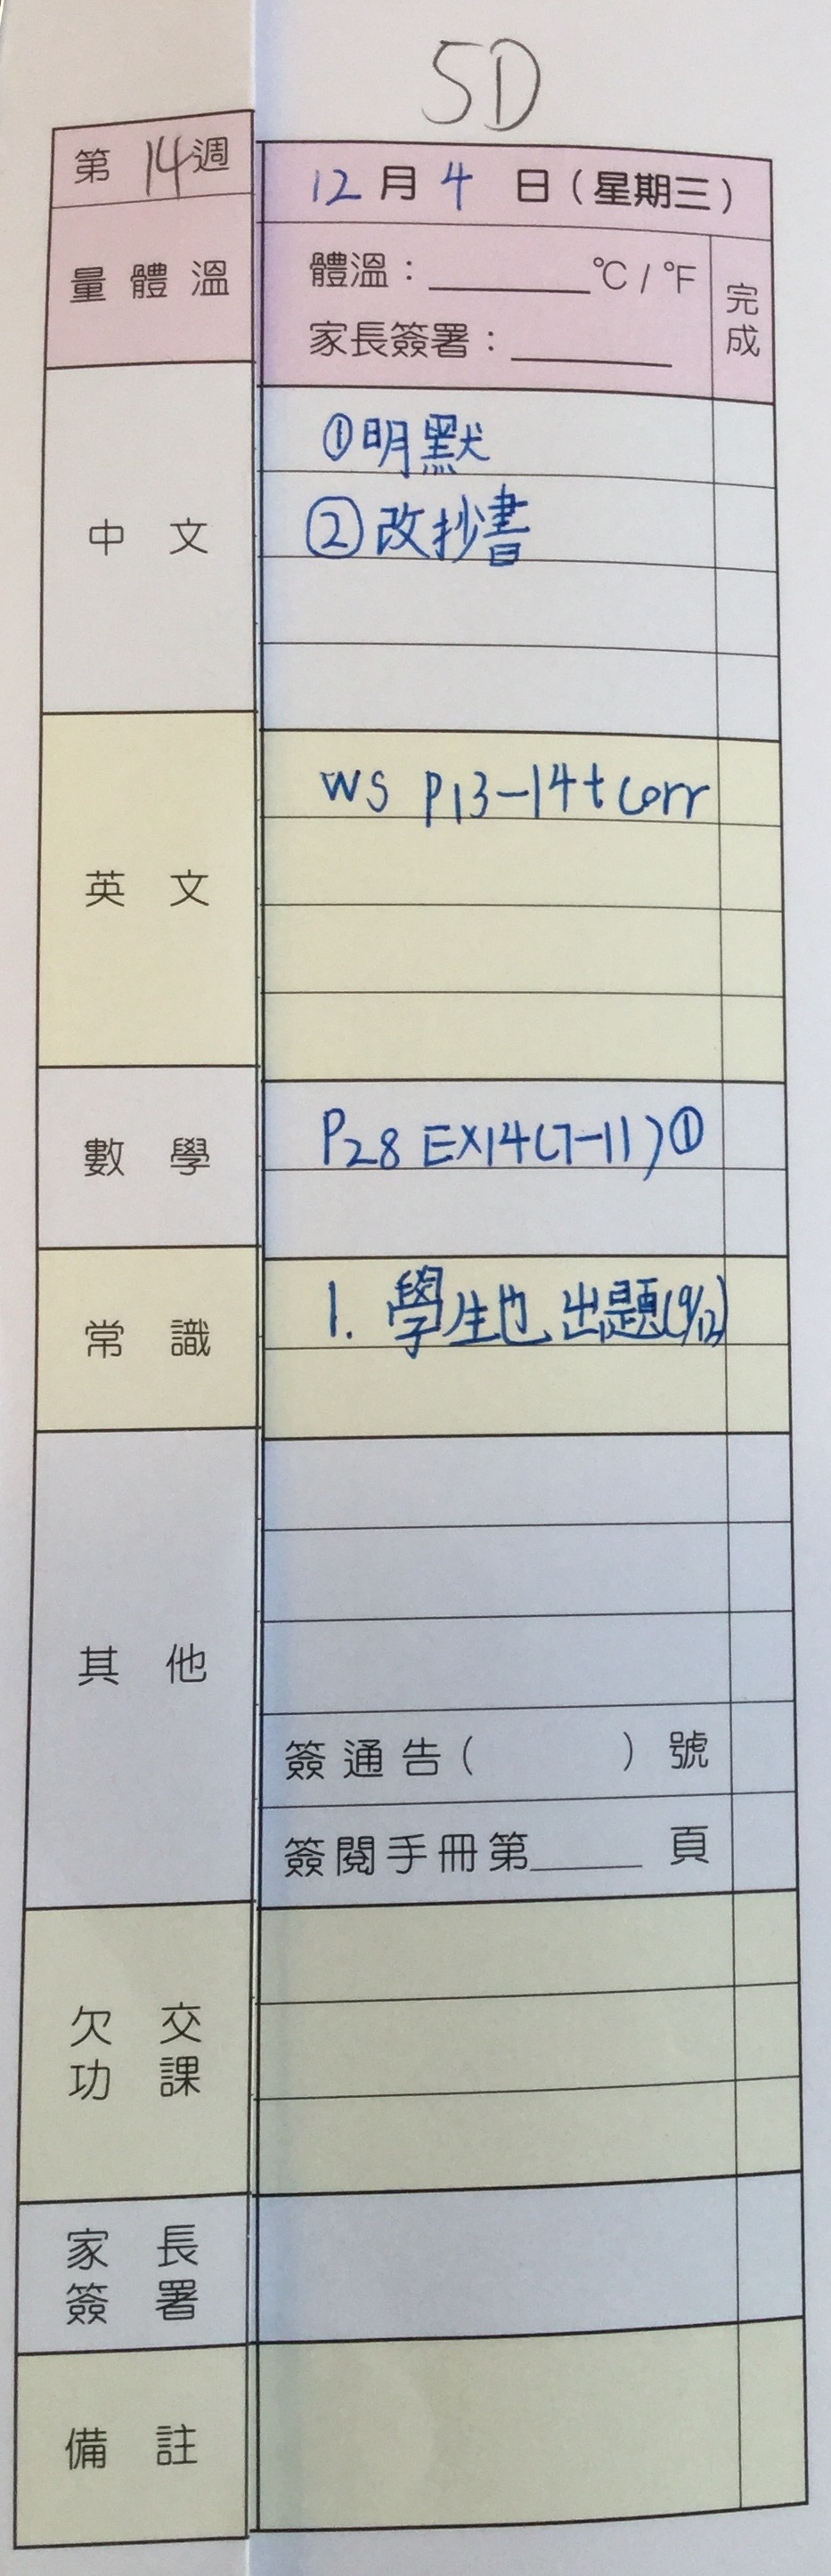 5D
第 14 週
12 月 4 日（星期三）
量體溫
體溫：______°C / °F
家長簽署：______
完成
中文
①明默
②改抄書
英文
WS P13-14+corr
數學
P28 EX14(7-11)①
常識
1. 學生也出題(9/12)
其他
簽通告（ ）號
簽閱手冊第____頁
欠交
功課
家長
簽署
備註